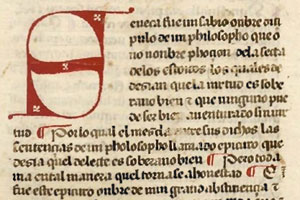 Seneca fue un sabio onbre disci
pulo de un philosopho que o
uo nonbre phocion de la secta
de los estoicos los quales de
desian que la uirtud es sobe
rano bien & que ninguno pue
de ser bien auenturado sin uir
tud ¶ Por lo qual el mescla entre sus dichos las
sentençias de un philosopho llamado epicuro que
desia quel deleite es soberano bien ¶ Pero toda
uia en tal manera quel torna a se a honestad ¶ E
fue este epicuro onbre de muy grand abstinençia &